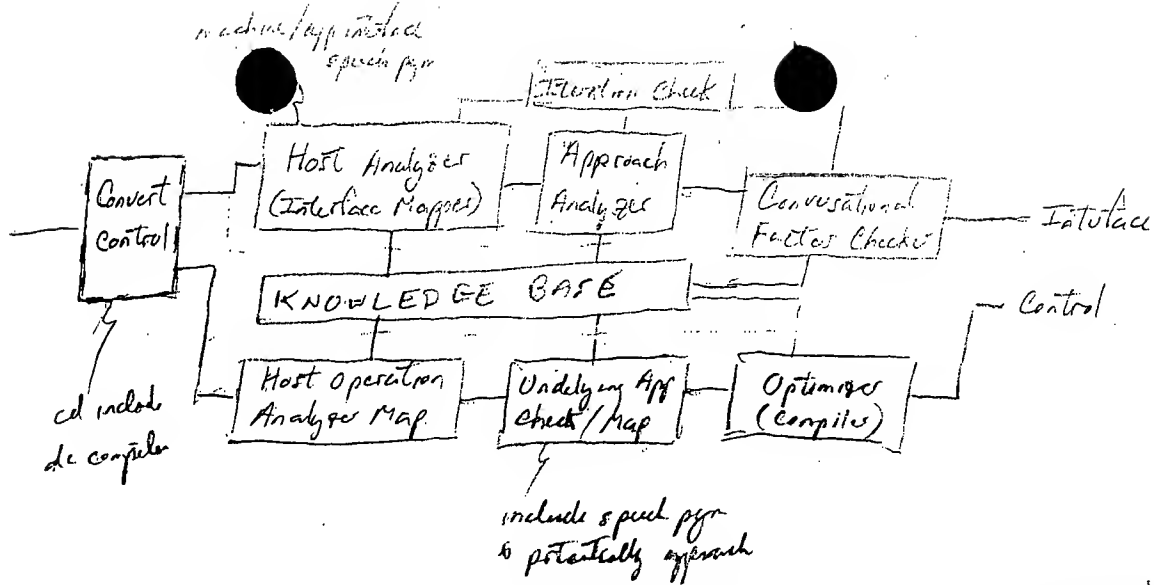 machine/app interface
speech pgm
Iteration Check
Host Analyzer
(Interface Mapper)
Approach
Analyzer
Convert
Control
Conversational
Factor Checker
Interface
KNOWLEDGE BASE
Control
Host Operation
Analyzer Map
Underlying App
Check/Map
Optimizer
(Compiler)
cd include
de compiler
include speech pgm
& potentially approach